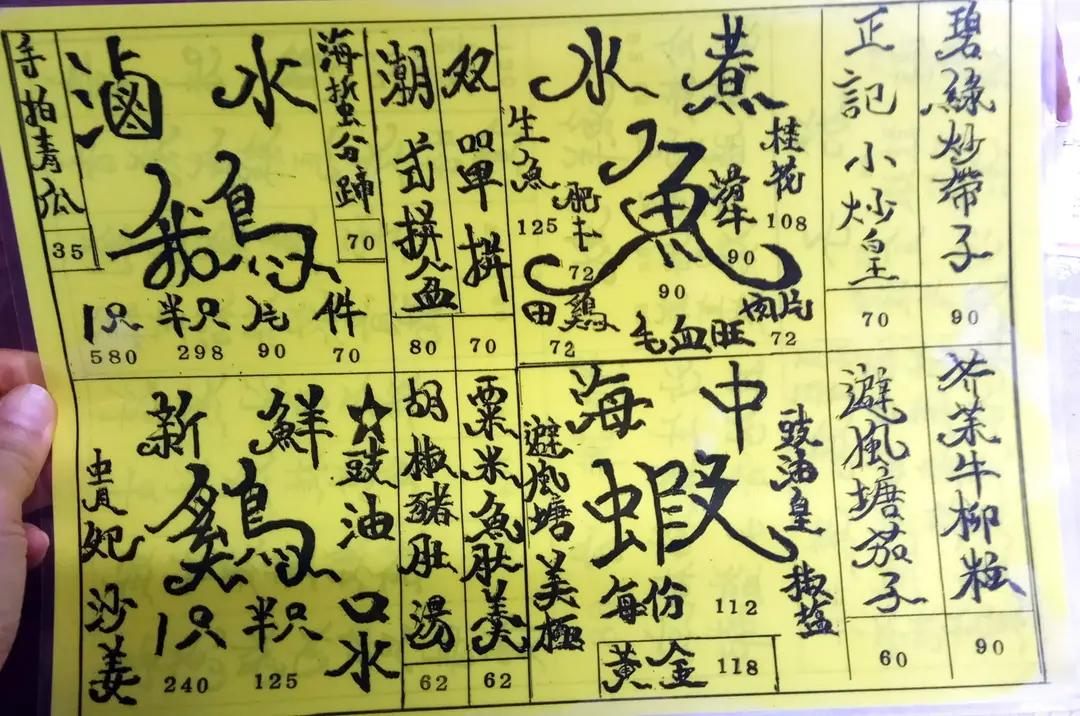 手拍青瓜
35
滷水鵝
1只 580
半只 298
片 90
件 70
海蜇分蹄
70
潮式拼盆
80
双拼
70
水煮魚
90
生魚
125
肥牛
72
桂花
108
90
田鷄
72
毛血旺
肉片
72
正記小炒皇
70
碧綠炒帶子
90
新鮮鷄
1只 240
半只 125
貴妃
沙姜
☆豉油
口水
胡椒豬肚湯
62
粟米魚肚羹
62
海中蝦
每份 112
黃金 118
避風塘
美極
豉油皇
椒鹽
避風塘茄子
60
芥茉牛柳粒
90